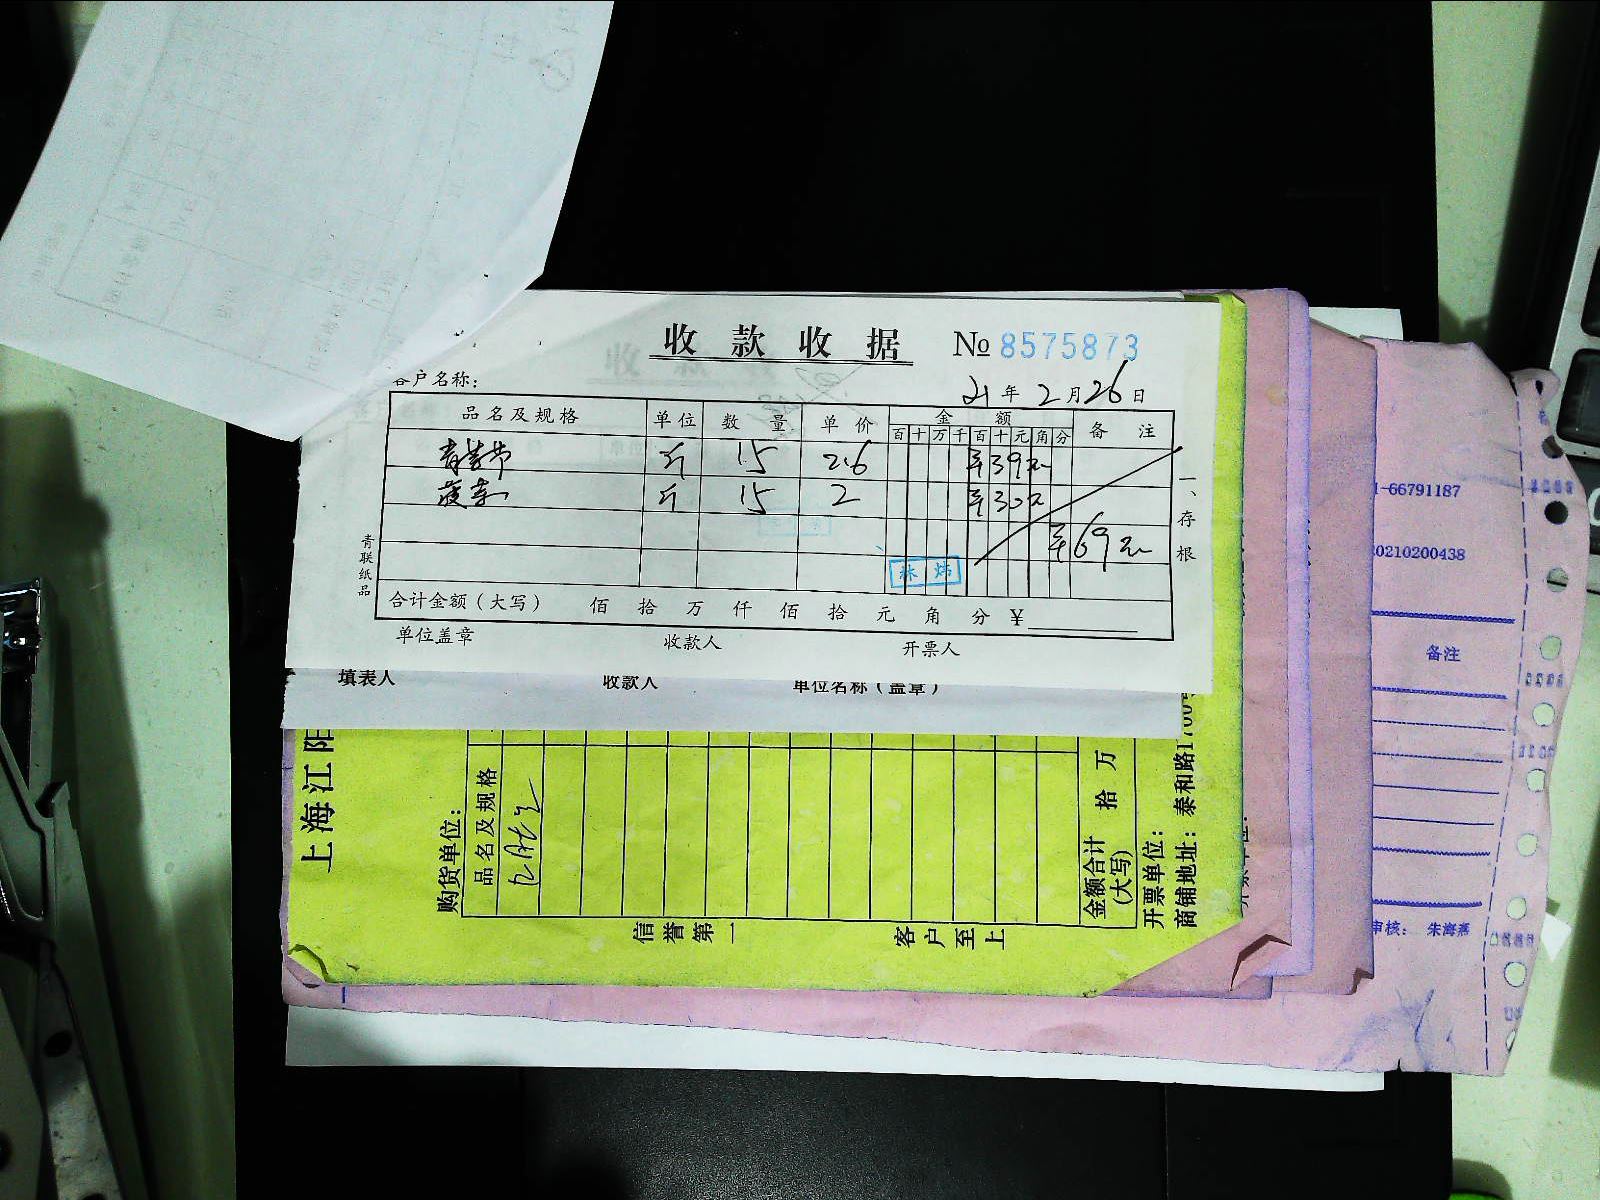 收款收据 № 8575873
客户名称: 21年2月26日
品名及规格 单位 数量 单价 金额 备注
百十万千百十元角分
斤 15 2.6 ¥39元
菠菜 斤 15 2 ¥30元
¥69元
合计金额(大写) 佰 拾 万 仟 佰 拾 元 角 分 ¥
单位盖章 收款人 开票人
一、存根
青联纸品
填表人 收款人 单位名称(盖章)
上海江阳
购货单位:
品名及规格
金额合计(大写) 拾 万
开票单位:
商铺地址: 泰和路1700
信誉第一 客户至上
1-66791187
0210200438
备注
审核: 朱海燕